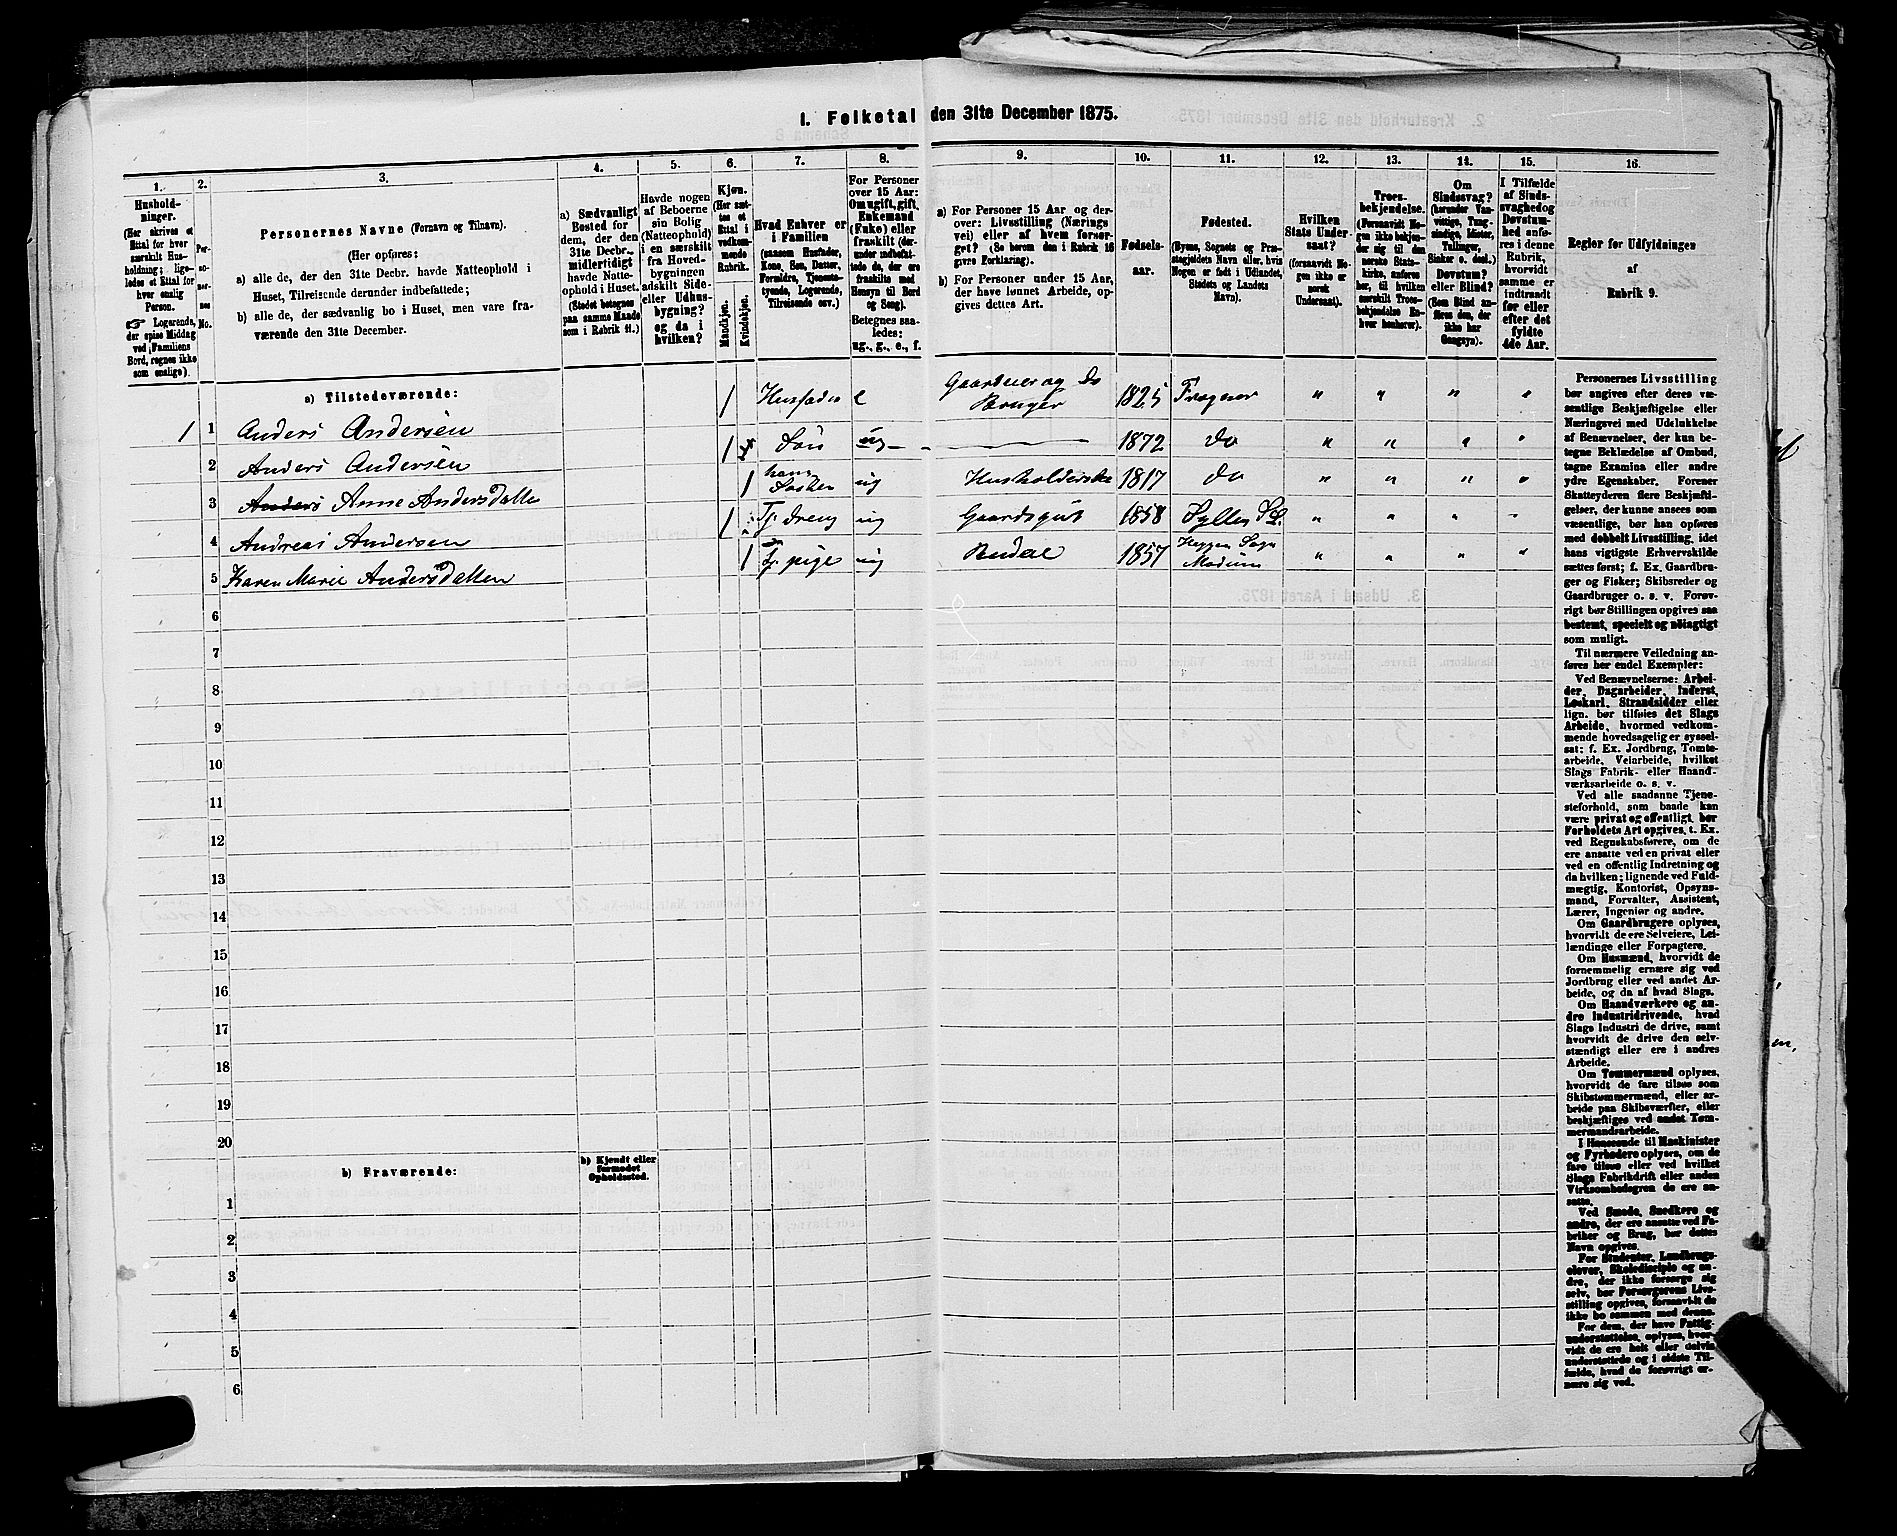 1. Folketal den 31te December 1875.
1. 2. 3. 4. 5. 6. 7. 8. 9. 10. 11. 12. 13. 14. 15. 16.
Hushold-
ninger.
(Her skrives et
Ettal for hver
særskilt Hus-
holdning; lige-
ledes et Ettal for
hver enslig
Person.
Logerende,
der spise Middag
ved Familiens
Bord, regnes ikke
som enslige).
Per-
so-
ner-
nes
No.
Personernes Navne (Fornavn og Tilnavn).
(Her opføres:
a) alle de, der den 31te Decbr. havde Natteophold i
Huset, Tilreisende derunder indbefattede;
b) alle de, der sædvanlig bo i Huset, men vare fra-
værende den 31te December.
a) Sædvanligt
Bosted for
dem, der den
31te Decbr.
midlertidigt
havde Natte-
ophold i Huset.
(Stedet betegnes
paa samme Maade
som i Rubrik 11.)
Havde nogen
af Beboerne
sin Bolig
(Natteophold)
i en særskilt
fra Hoved-
bygningen
adskilt Side-
eller Udhus-
bygning?
og da i
hvilken?
Kjøn.
(Her sæt-
tes et
Ettal i
vedkom-
mende
Rubrik.
Mandkjøn.
Kvindekjøn.
Hvad Enhver er
i Familien
(saasom Husfader,
Kone, Søn, Datter,
Forældre, Tjeneste-
tyende, Logerende,
Tilreisende osv.)
For Personer
over 15 Aar:
Om ugift, gift,
Enkemand
(Enke) eller
fraskilt (der-
under indbefat-
tede de, der ere
fraskilte med
Hensyn til Bord
og Seng).
Betegnes saa-
ledes:
ug., g., e., f.
a) For Personer 15 Aar og der-
over: Livsstilling (Nærings-
vei) eller af hvem forsør-
get? (Se herom den i Rubrik 16
givne Forklaring).
b) For Personer under 15 Aar,
der have lønnet Arbeide, op-
gives dettes Art.
Fødsels-
aar.
Fødested.
(Byens, Sognets og Præ-
stegjeldets Navn eller, hvis
Nogen er født i Udlandet,
Stedets og Landets
Navn).
Hvilken
Stats Under-
saat?
(forsaavidt No-
gen ikke er
norsk
Undersaat).
Troes-
bekjendelse.
(Forsaavidt No-
gen ikke bekjen-
der sig til den
norske Stats-
kirke, anføres
her, til hvilken
særskilt Troes-
bekjendelse En-
hver henhører).
Om
Sindssvag?
(herunder Van-
vittige, Tung-
sindige, Idioter,
Tullinger,
Sinker o. desl.)
Døvstum?
eller Blind?
(Som Blind an-
føres den, der
ikke har
Gangsyn).
I Tilfælde
af Sinds-
svaghed og
Døvstum-
hed anfø-
res i denne
Rubrik,
hvorvidt
samme er
indtraadt
før eller
efter det
fyldte
4de Aar.
Regler for Udfyldningen
af
Rubrik 9.
a) Tilstedeværende:
1 1 Anders Andersen 1 Husfader e Gaardeier og do Bruger 1825 Frogner " " " "
2 Anders Andersen 1 Søn ug — 1872 do " " " "
3 Anders Anne Andersdatter 1 hans Søster ug Husholderske 1817 do " " " "
4 Andreas Andersen 1 Tj. dreng ug Gaardsgut 1858 " " " "
5 Karen Marie Andersdatter 1 Tj. pige ug Budeie 1857 Heggen Sogn Modum " " " "
6
7
8
9
10
11
12
13
14
15
16
17
18
19
20
b) Fraværende:
b) Kjendt eller
formodet
Opholdssted.
1
2
3
4
5
6
Personernes Livsstilling
bør angives efter deres væ-
sentlige Beskjæftigelse eller
Næringsvei med Udelukkelse
af Benævnelser, der kun be-
tegne Beklædelse af Ombud,
tagne Examina eller andre
ydre Egenskaber. Forener
Skatteyderen flere Beskjæfti-
gelser, der kunne ansees som
væsentlige, bør han opføres
med dobbelt Livsstilling, idet
hans vigtigste Erhvervskilde
sættes først; f. Ex. Gaardbru-
ger og Fisker; Skibsreder og
Gaardbruger o. s. v. Forøv-
rigt bør Stillingen opgives saa
bestemt, specielt og nøiagtigt
som muligt.
Til nærmere Veiledning an-
føres her endel Exempler:
Ved Benævnelserne: Arbei-
der, Dagarbeider, Inderst,
Løskarl, Strandsidder eller
lign. bør tilføies det Slags
Arbeide, hvormed vedkom-
mende hovedsagelig er syssel-
sat; f. Ex. Jordbrug, Tomte-
arbeide, Veiarbeide, hvilket
Slags Fabrik- eller Haand-
værksarbeide o. s. v.
Ved alle saadanne Tjene-
steforhold, som baade kan
være privat og offentligt, bør
Forholdets Art opgives, t. Ex.
ved Regnskabsførere, om de
ere ansatte ved en privat eller
ved en offentlig Indretning og
da hvilken; lignende ved Fuld-
mægtig, Kontorist, Opsyns-
mand, Forvalter, Assistent,
Lærer, Ingeniør og andre.
Om Gaardbrugere oplyses,
hvorvidt de ere Selveiere, Lei-
lændinge eller Forpagtere.
Om Husmænd, hvorvidt de
fornemmelig ernære sig ved
Jordbrug eller ved andet Ar-
beide, og da af hvad Slags.
Om Haandværkere og an-
dre Industridrivende, hvad
Slags Industri de drive, samt
hvorvidt de drive den selv-
stændigt eller ere i andres
Arbeide.
Om Tømmermænd oplyses,
hvorvidt de fare tilsøs som
Skibstømmermænd, eller ar-
beide paa Skibsværfter, eller
beskjæftiges ved andet Tøm-
mermandsarbeide.
I Henseende til Maskinister
og Fyrbødere oplyses, om de
fare tilsøs eller ved hvilket
Slags Fabrikdrift eller anden
Virksomhedsgren de ere an-
satte.
Ved Smede, Snedkere og
andre, der ere ansatte ved Fa-
briker og Brug, bør dettes
Navn opgives.
For Studenter, Landbrugs-
elever, Skoledisciple og an-
dre, der ikke forsørge sig
selv, bør Forsørgerens Livs-
stilling opgives, forsaavidt de
ikke bo sammen med denne.
For dem, der have Fattig-
understøttelse, oplyses, hvor-
vidt de ere helt eller delvis
understøttede og i sidste Til-
fælde, hvad de forøvrigt er-
nære sig ved.